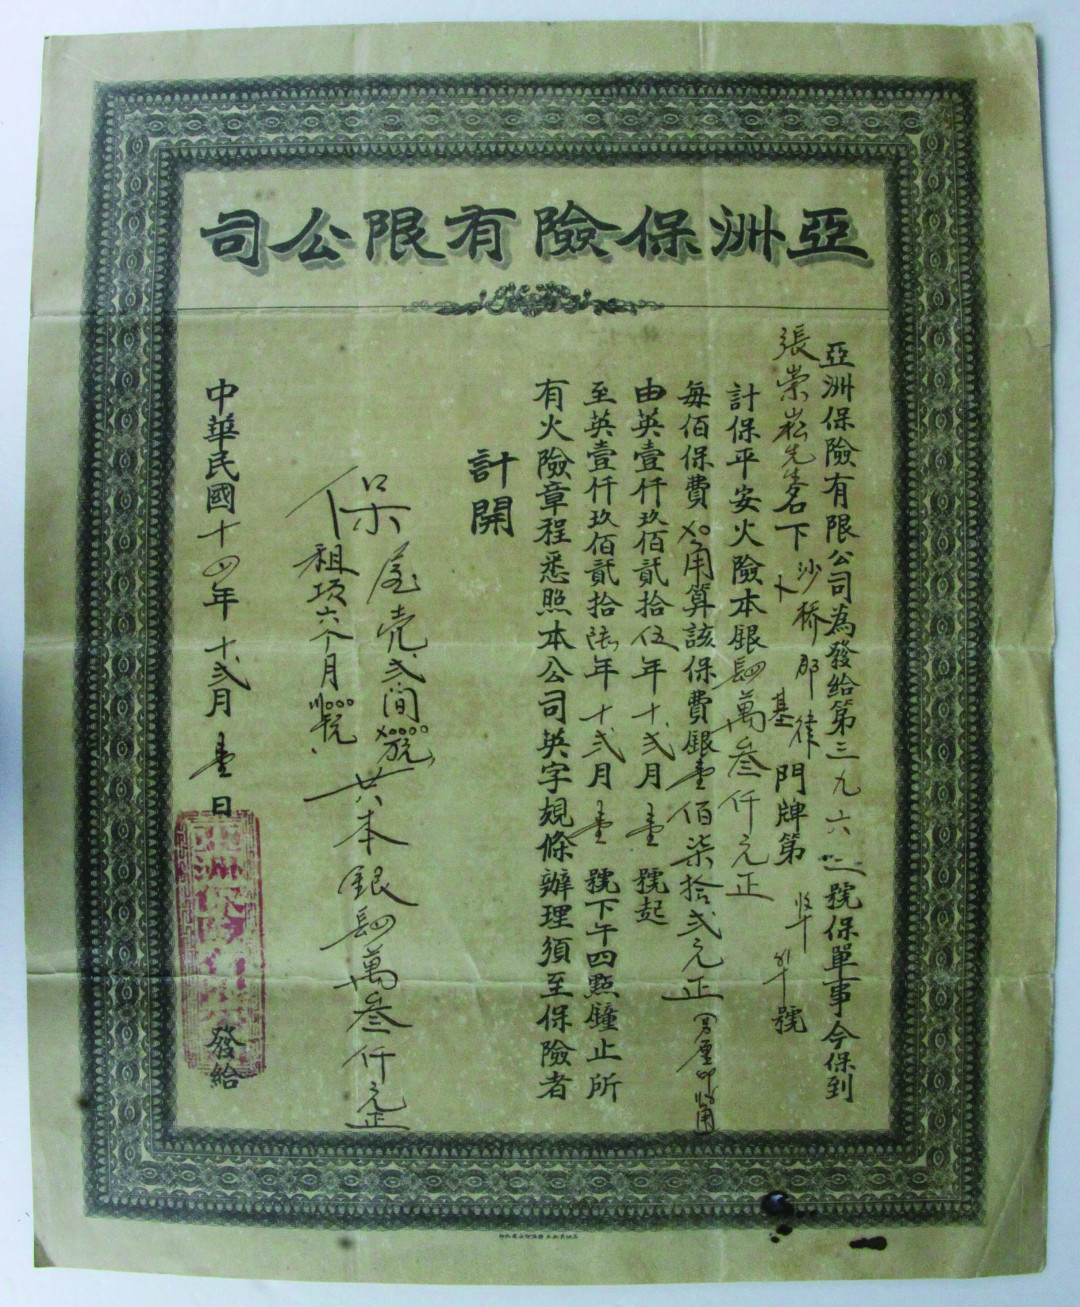 亞洲保險有限公司
亞洲保險有限公司為發給第三九六二號保單事今保到
張崇崧先生名下沙桥郡律基門牌第 號
計保平安火險本銀四萬叁仟元正
每佰保費 算該保費銀壹佰柒拾弍元正
由英壹仟玖佰貳拾伍年十弍月壹號起
至英壹仟玖佰貳拾陸年十弍月壹號下午四點鐘止所
有火險章程悉照本公司英字規條辦理須至保險者
計開
保屋壳弍間 共本銀四萬叁仟元正
租項六个月
中華民國十四年十弍月壹日 發給
亞洲保險有限公司